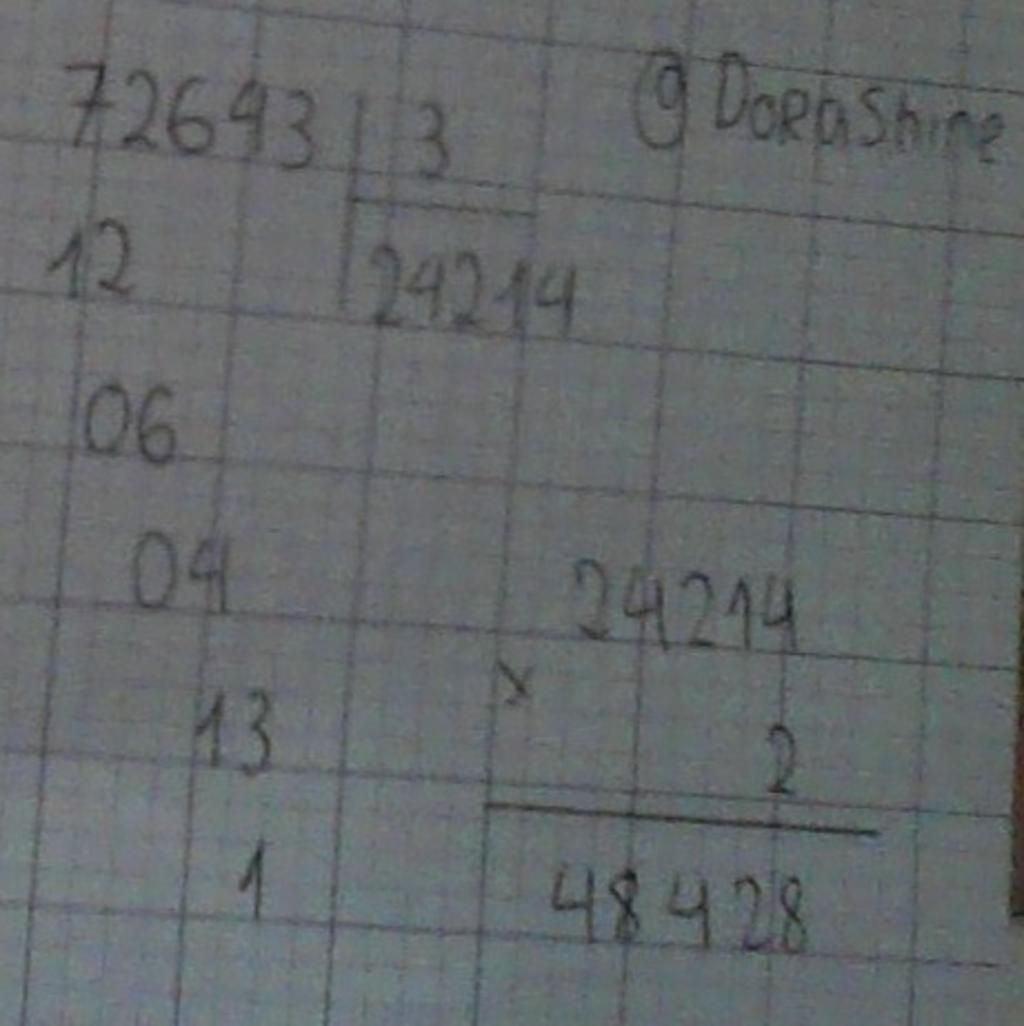 72643 | 3 @DoRaShine
12 24214
06
04 24214
x
13 2
1 48428